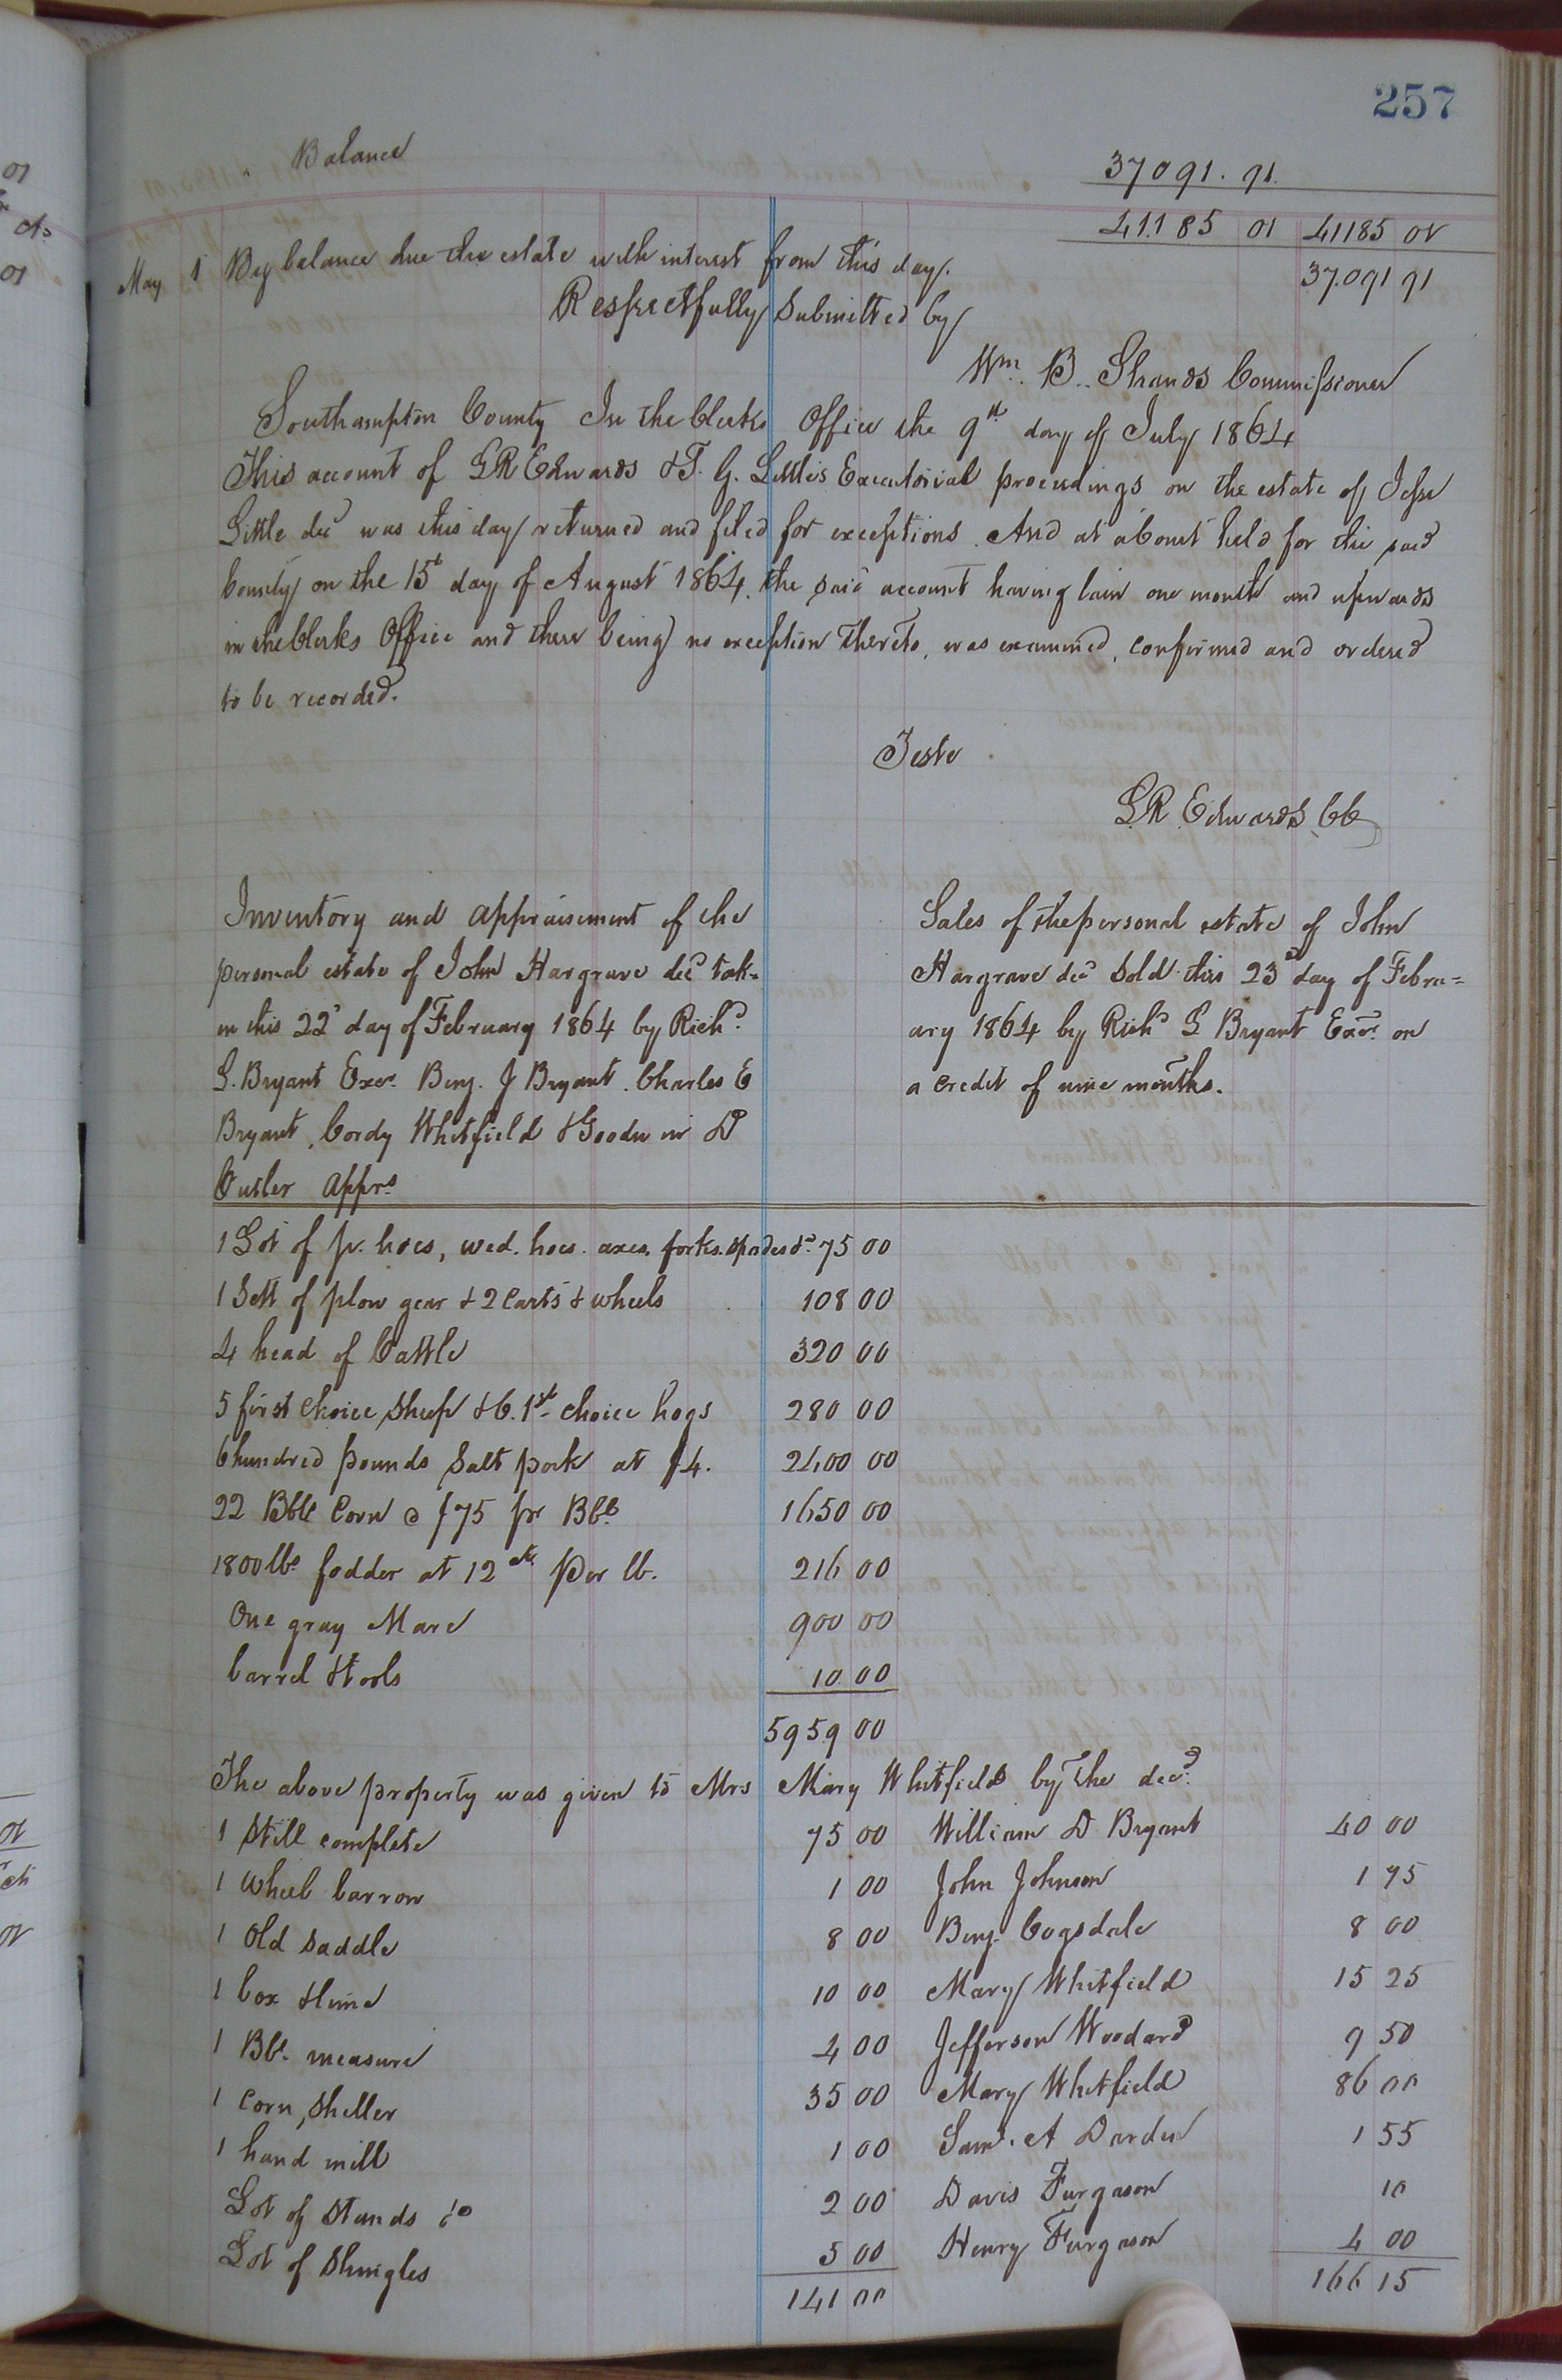 257
Balance 37091.91.
41185 01 41185 01
May 1 By balance due the estate with interest from this day. 37.091 91
Respectfully Submitted by
Wm. B. Shands Commissioner
Southampton County In the Clerks Office the 9th day of July 1864
This account of L R Edwards & T. G. Little's Executorial proceedings on the estate of Jesse
Little decd was this day returned and filed for exceptions. And at a Court held for the said
County on the 15th day of August 1864. the said account having lain one month and upwards
in the Clerks Office and there being no exception thereto, was examined, confirmed and ordered
to be recorded.
Teste
L R Edwards CC
Inventory and appraisement of the
personal estate of John Hargrave decd tak-
en this 22d day of February 1864 by Richd.
L. Bryant Exor. Benj. J Bryant. Charles E
Bryant, Cordy Whitfield & Goodwin D
Butler Apprs
Sales of the personal estate of John
Hargrave decd Sold this 23d day of Febru=
ary 1864 by Richd L Bryant Exor. on
a credit of nine months.
1 Lot of pr. hoes, wed. hoes. axes, forks. Spades &c. 75 00
1 Sett of plow gear & 2 Carts & wheels 108 00
4 head of Cattle 320 00
5 first choice Sheep & 6. 1st choice hogs 280 00
6 hundred pounds Salt pork at $4. 2400 00
22 Bbls Corn @ $75 pr Bbl. 1650 00
1800 lbs. fodder at 12 cts per lb. 216 00
One gray Mare 900 00
barrel & tools 10 00
5959 00
The above property was given to Mrs Mary Whitfield by the decd.
1 Still complete 75 00 William D Bryant 40 00
1 wheel barrow 1 00 John Johnson 1 75
1 Old Saddle 8 00 Benj. Cogsdale 8 00
1 box & lime 10 00 Mary Whitfield 15 25
1 Bbl. measure 4 00 Jefferson Woodard 9 50
1 Corn Sheller 35 00 Mary Whitfield 86 00
1 hand mill 1 00 Saml. A Darden 1 55
Lot of Stands &c 2 00 Davis Furgason 10
Lot of Shingles 5 00 Henry Furgason 4 00
141 00 166 15